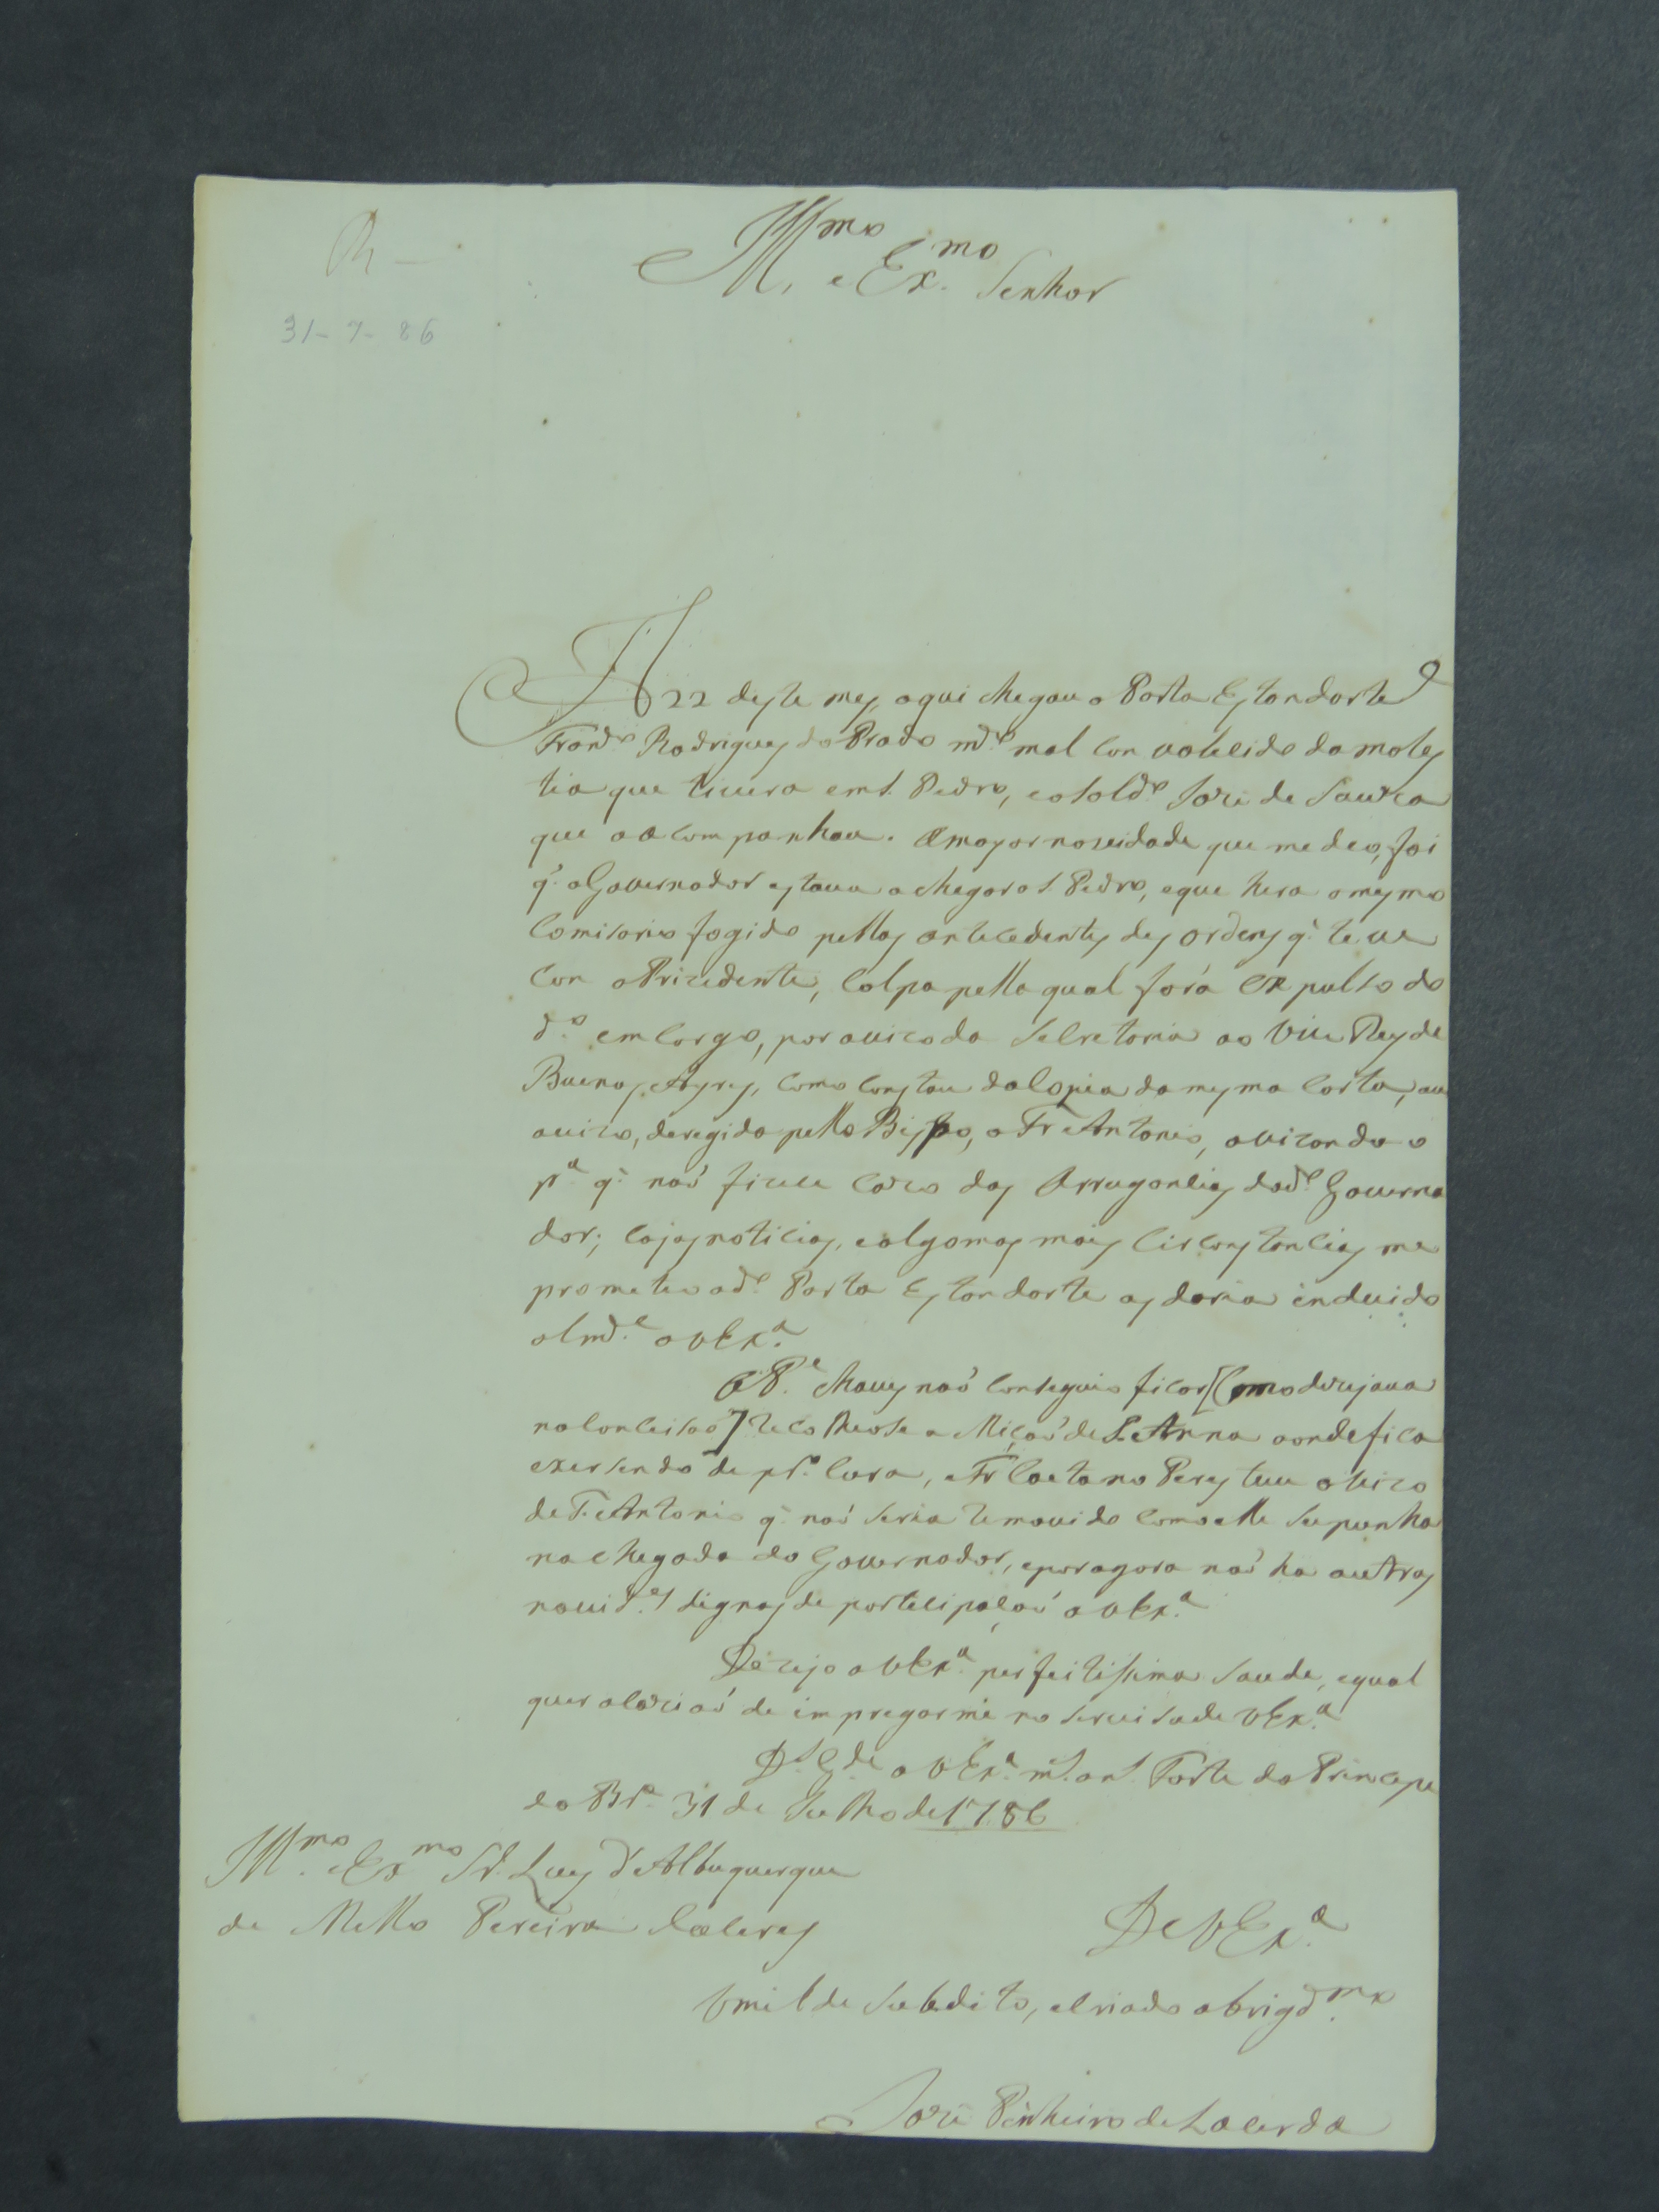 R —
31-7-86
Ill.mo e Ex.mo Senhor
A 22 deste mes, aqui chegou o Porta Estandarte
Fran.co Rodrigues do Prado m.to mal convalecido da moles
tia que tivera em S. Pedro, e o sold.o Joze de Souza
que o acompanhou. A mayor novidade que me deo, foi
q. o Governador estava a chegar a S. Pedro, e que hera o mesmo
Comisario fogido pellas antecedentes desordens q. teve
con o Prizedente, colpa pella qual fora expulso do
d.o emcargo, por avizo da Secretaria ao Vice Rey de
Buenos Ayres, como constou da copia da mesma carta, ou
avizo, deregida pello Bispo, a Fr Antonio, avizando o
p.a q. naõ fizece cazo das Arrogancias do d.o Governa
dor; cojas noticias, e algomas mais circonstancias me
prometeo o d.o Porta Estandarte as daria endevido
alm.e a V Ex.a
O P.e Chaves naõ conseguio ficar [como dezejava
na Conceisaõ] recolheose a Miçaõ de S. Anna aonde fica
exersendo de pr.o Cura, e Fr Caetano Peres teve avizo
de F. Antonio q. naõ seria removido como elle supunha
na chegada do Governador, e por agora naõ ha outras
novid.es dignas de partecipalas a V Ex.a
Dezejo a V Ex.a perfeitissima saude, e qual
quer alocziaõ de impregarme no serviso de V Ex.a
D.s G.de a V Ex.a m.s an.s Forte do Principe
da Br.a 31 de Julho de 1786
Ill.mo e Ex.mo Sr. Luis d'Albuquerque
de Mello Pereira Caceres
De V Ex.a
Umilde Subdito, e criado obrigd.mo
Joze Pinheiro de Lacerda